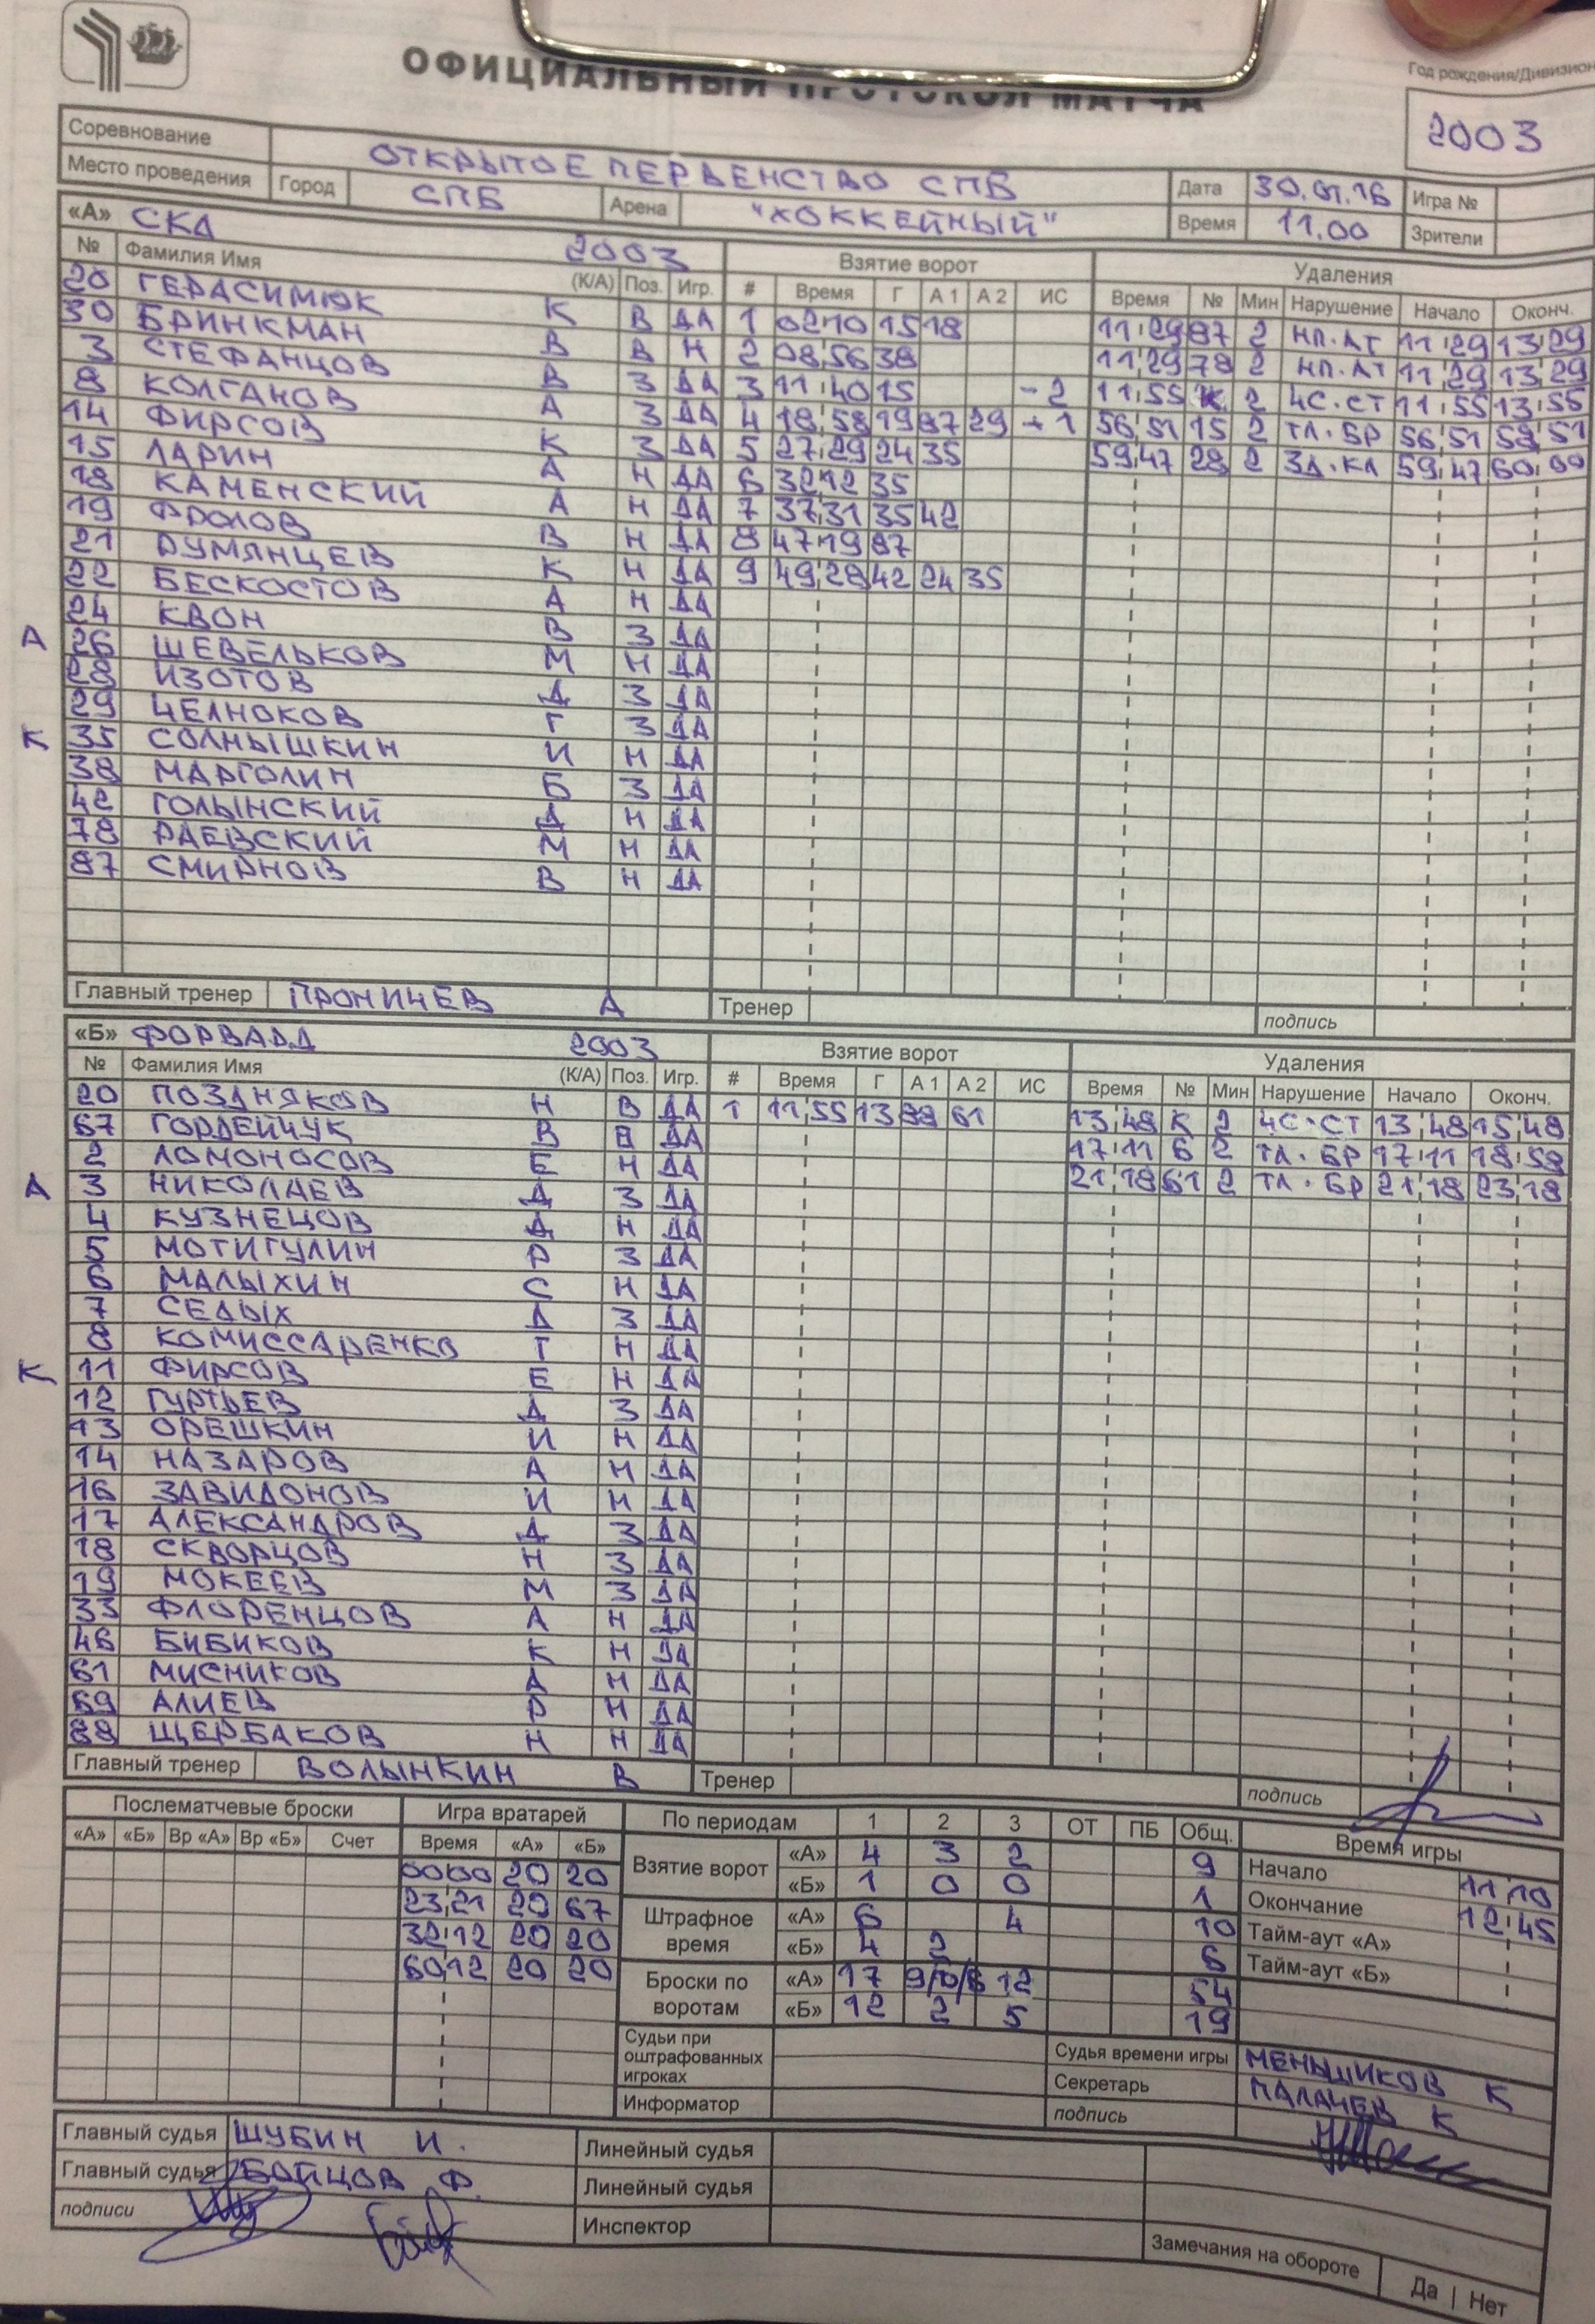 ОФИЦИАЛЬНЫЙ ПРОТОКОЛ МАТЧА
Год рождения/Дивизион
2003
Соревнование ОТКРЫТОЕ ПЕРВЕНСТВО СПБ Дата 30.01.16 Игра №
Место проведения Город СПБ Арена "ХОККЕЙНЫЙ" Время 11.00 Зрители
«А» СКА 2003 Взятие ворот Удаления
№ Фамилия Имя (К/А) Поз. Игр. # Время Г А 1 А 2 ИС Время № Мин Нарушение Начало Оконч.
20 ГЕРАСИМЮК К В ДА 1 02:10 15 18 11:29 87 2 НП.АТ 11:29 13:29
30 БРИНКМАН В В Н 2 08:56 38 11:29 78 2 НП.АТ 11:29 13:29
3 СТЕФАНЦОВ В З ДА 3 11:40 15 -2 11:55 К 2 ЧС.СТ 11:55 13:55
8 КОЛГАНОВ А З ДА 4 18:58 19 87 29 +1 56:51 15 2 ТЛ.БР 56:51 58:51
14 ФИРСОВ К З ДА 5 27:29 24 35 59:47 28 2 ЗД.КЛ 59:47 60:00
15 ЛАРИН А Н ДА 6 32:12 35
18 КАМЕНСКИЙ А Н ДА 7 37:31 35 42
19 ФРОЛОВ В Н ДА 8 47:19 87
21 РУМЯНЦЕВ К Н ДА 9 49:28 42 24 35
22 БЕСКОСТОВ А Н ДА
24 КВОН В З ДА
А 26 ШЕВЕЛЬКОВ М Н ДА
28 ИЗОТОВ Д З ДА
29 ЧЕЛНОКОВ Г З ДА
К 35 СОЛНЫШКИН И Н ДА
38 МАРГОЛИН Б З ДА
42 ГОЛЫНСКИЙ Д Н ДА
78 РАЕВСКИЙ М Н ДА
87 СМИРНОВ В Н ДА
Главный тренер ПРОНИЧЕВ А Тренер
подпись
«Б» ФОРВАРД 2003 Взятие ворот Удаления
№ Фамилия Имя (К/А) Поз. Игр. # Время Г А 1 А 2 ИС Время № Мин Нарушение Начало Оконч.
20 ПОЗДНЯКОВ Н В ДА 1 11:55 13 88 61 13:48 К 2 ЧС.СТ 13:48 15:48
67 ГОРДЕЙЧУК В В ДА 17:11 6 2 ТЛ.БР 17:11 18:58
2 ЛОМОНОСОВ Е Н ДА 21:18 61 2 ТЛ.БР 21:18 23:18
А 3 НИКОЛАЕВ Д З ДА
4 КУЗНЕЦОВ Д Н ДА
5 МОТИГУЛИН Р З ДА
6 МАЛЫХИН С Н ДА
7 СЕДЫХ Д З ДА
8 КОМИССАРЕНКО Т Н ДА
К 11 ФИРСОВ Е Н ДА
12 ГУРТЬЕВ Д З ДА
13 ОРЕШКИН И Н ДА
14 НАЗАРОВ А Н ДА
16 ЗАВИДОНОВ И Н ДА
17 АЛЕКСАНДРОВ Д З ДА
18 СКВОРЦОВ Н З ДА
19 МОКЕЕВ М З ДА
33 ФЛОРЕНЦОВ А Н ДА
46 БИБИКОВ К Н ДА
61 МИСНИКОВ А Н ДА
69 АЛИЕВ Р Н ДА
88 ЩЕРБАКОВ Н Н ДА
Главный тренер ВОЛЫНКИН В Тренер
подпись
Послематчевые броски Игра вратарей По периодам 1 2 3 ОТ ПБ Общ. Время игры
«А» «Б» Вр «А» Вр «Б» Счет Время «А» «Б»
Взятие ворот «А» 4 3 2 9 Начало 11:10
00:00 20 20 «Б» 1 0 0 1 Окончание 12:45
23:21 20 67 Штрафное время «А» 6 4 10 Тайм-аут «А»
32:12 20 20 «Б» 4 2 6 Тайм-аут «Б»
60:12 20 20 Броски по воротам «А» 17 12 54
«Б» 12 2 5 19
Судьи при оштрафованных игроках Судья времени игры МЕНЬЩИКОВ К
Секретарь ПАЛАЧЕВ К
Информатор подпись
Главный судья ШУБИН И. Линейный судья
Главный судья БОЙЦОВ Ф. Линейный судья
подписи Инспектор Замечания на обороте Да | Нет